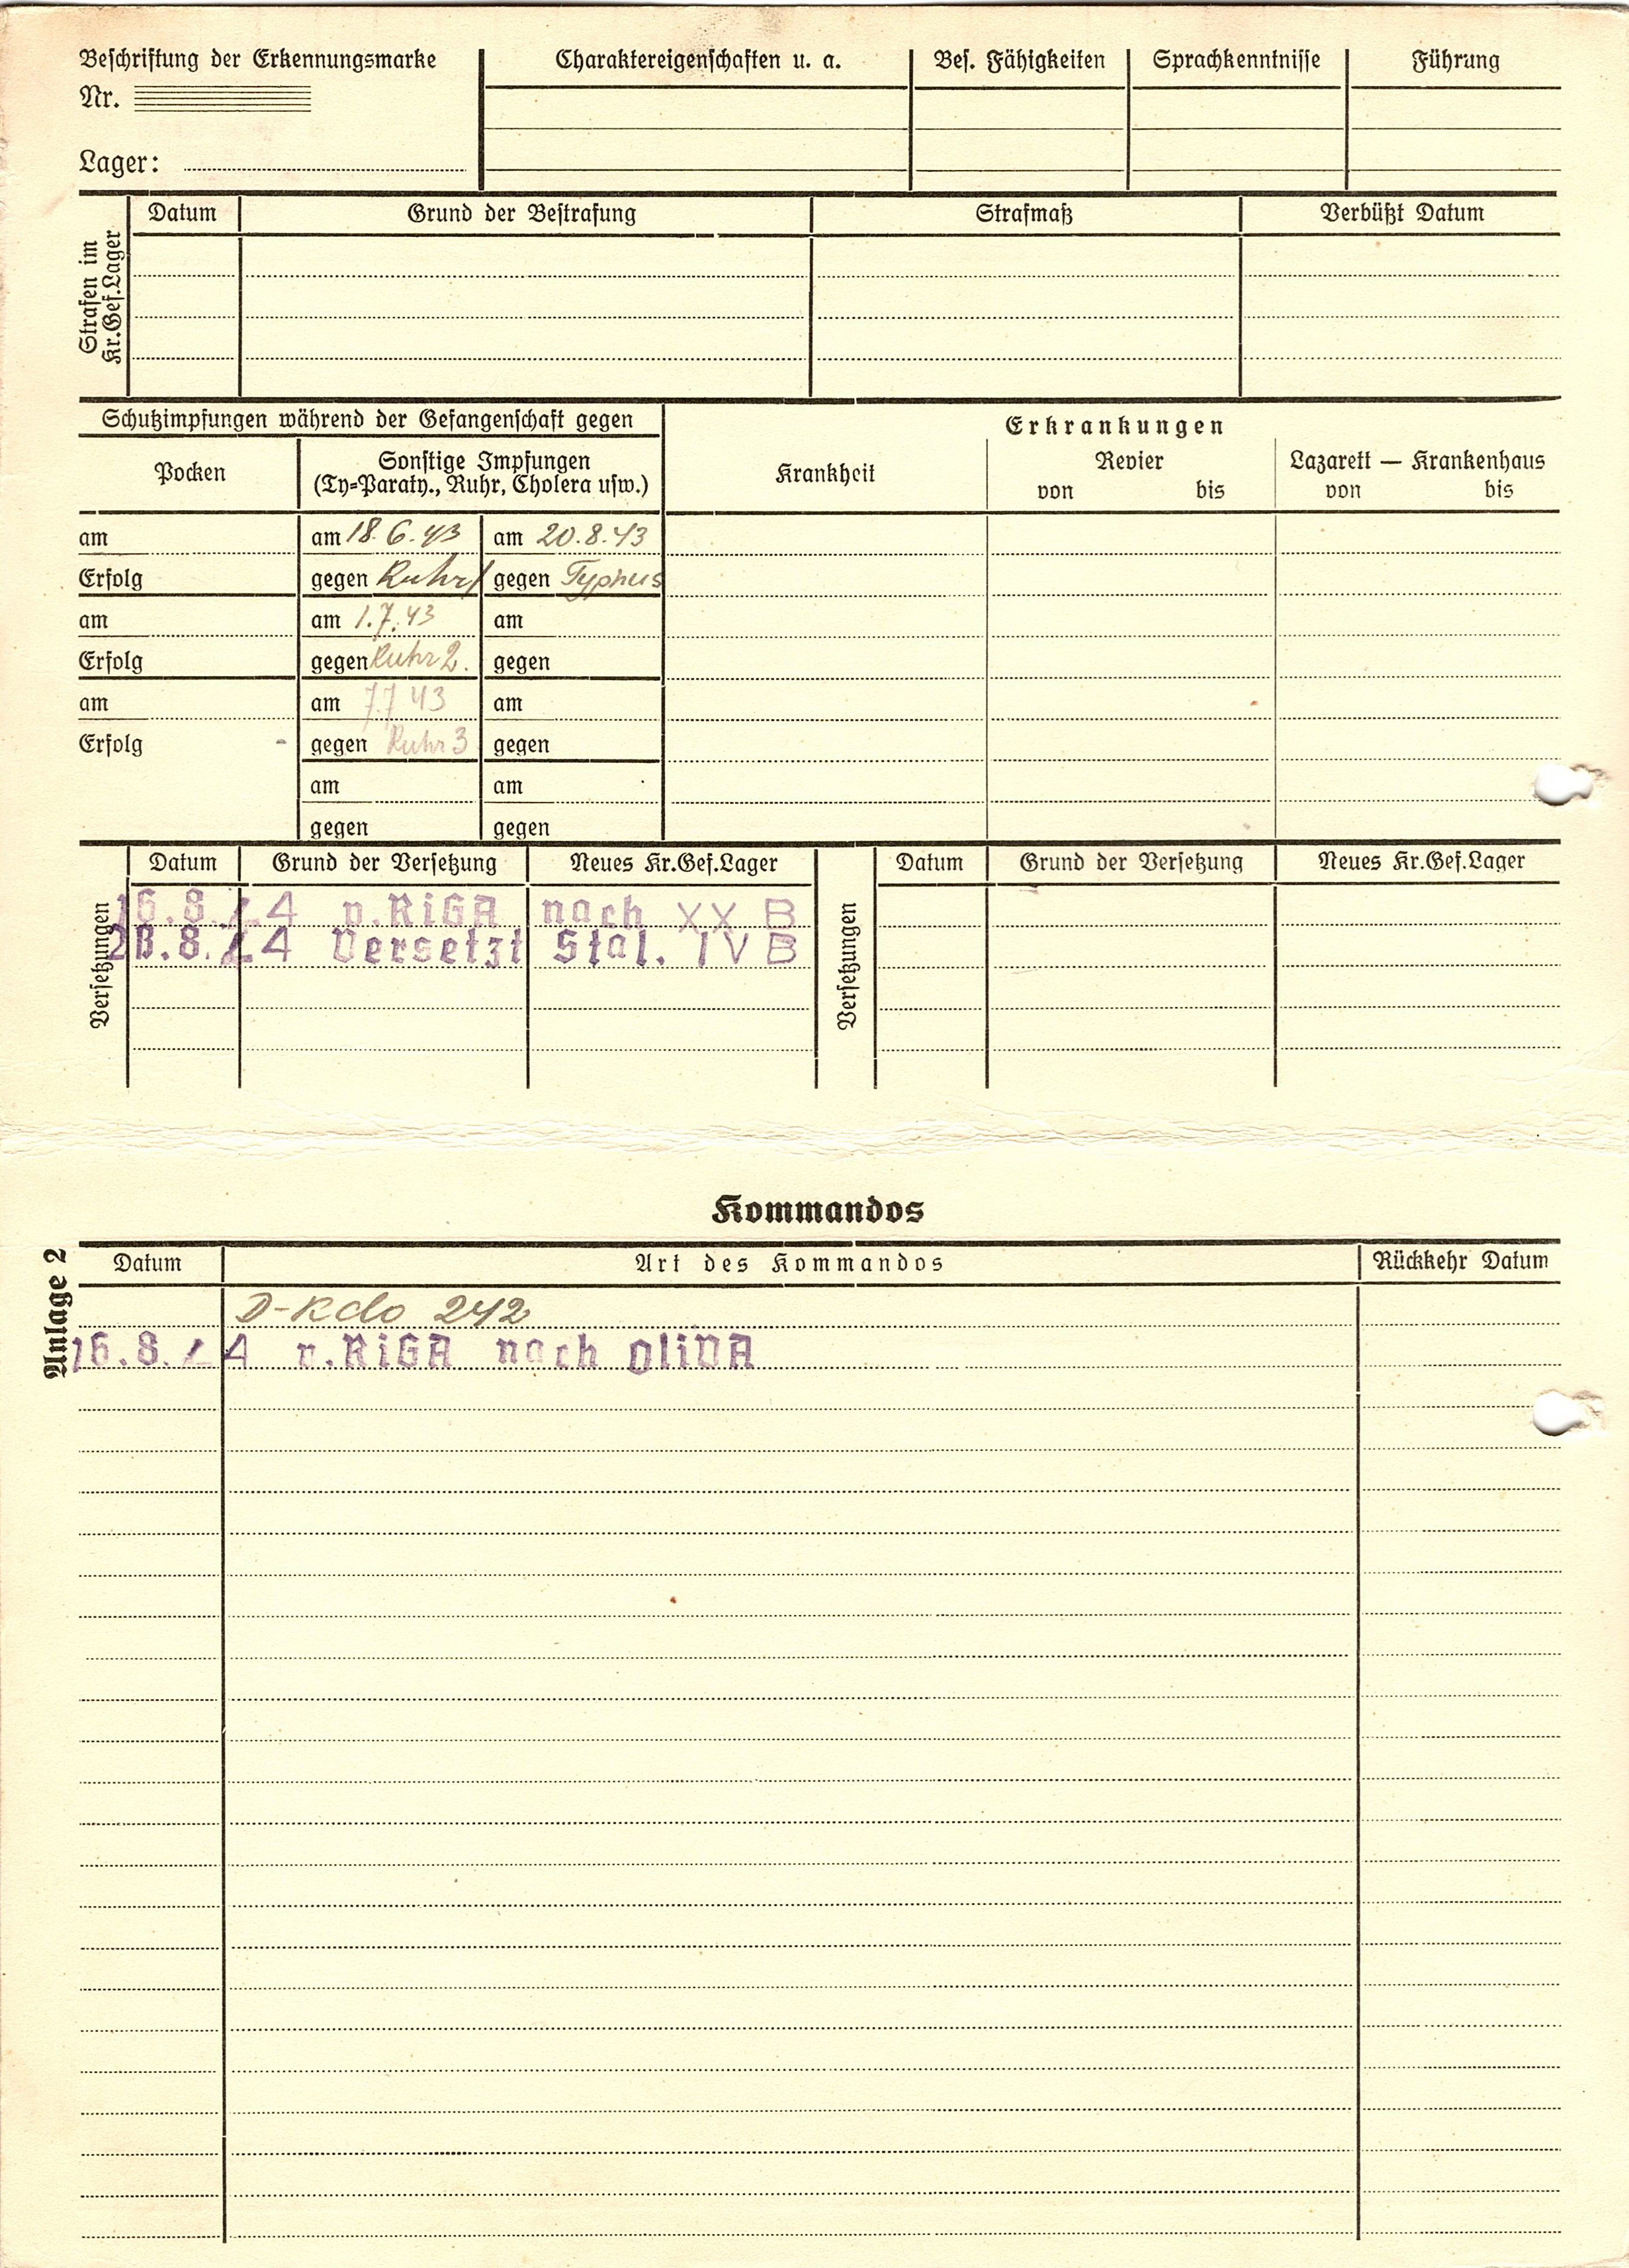 Beschriftung der Erkennungsmarke
Nr.
Lager:
Charaktereigenschaften u. a.
Bes. Fähigkeiten
Sprachkenntnisse
Führung
Strafen im
Kr.Gef.Lager
Datum
Grund der Bestrafung
Strafmaß
Verbüßt Datum
Schutzimpfungen während der Gefangenschaft gegen
Pocken
Sonstige Impfungen
(Ty=Paraty., Ruhr, Cholera usw.)
Erkrankungen
Krankheit
Revier
von bis
Lazarett — Krankenhaus
von bis
am am 18.6.43 am 20.8.43
Erfolg gegen Ruhr 1 gegen Typhus
am am 1.7.43 am
Erfolg gegen Ruhr 2. gegen
am am 7.7 43 am
Erfolg gegen Ruhr 3 gegen
am am
gegen gegen
Versetzungen
Datum Grund der Versetzung Neues Kr.Gef.Lager
16.8.44 v.RiGA nach XX B
28.8.44 Versetzt Stal. IV B
Versetzungen
Datum Grund der Versetzung Neues Kr.Gef.Lager
Kommandos
Anlage 2
Datum Art des Kommandos Rückkehr Datum
D-Kdo 242
16.8.44 v.RiGA nach OliVA